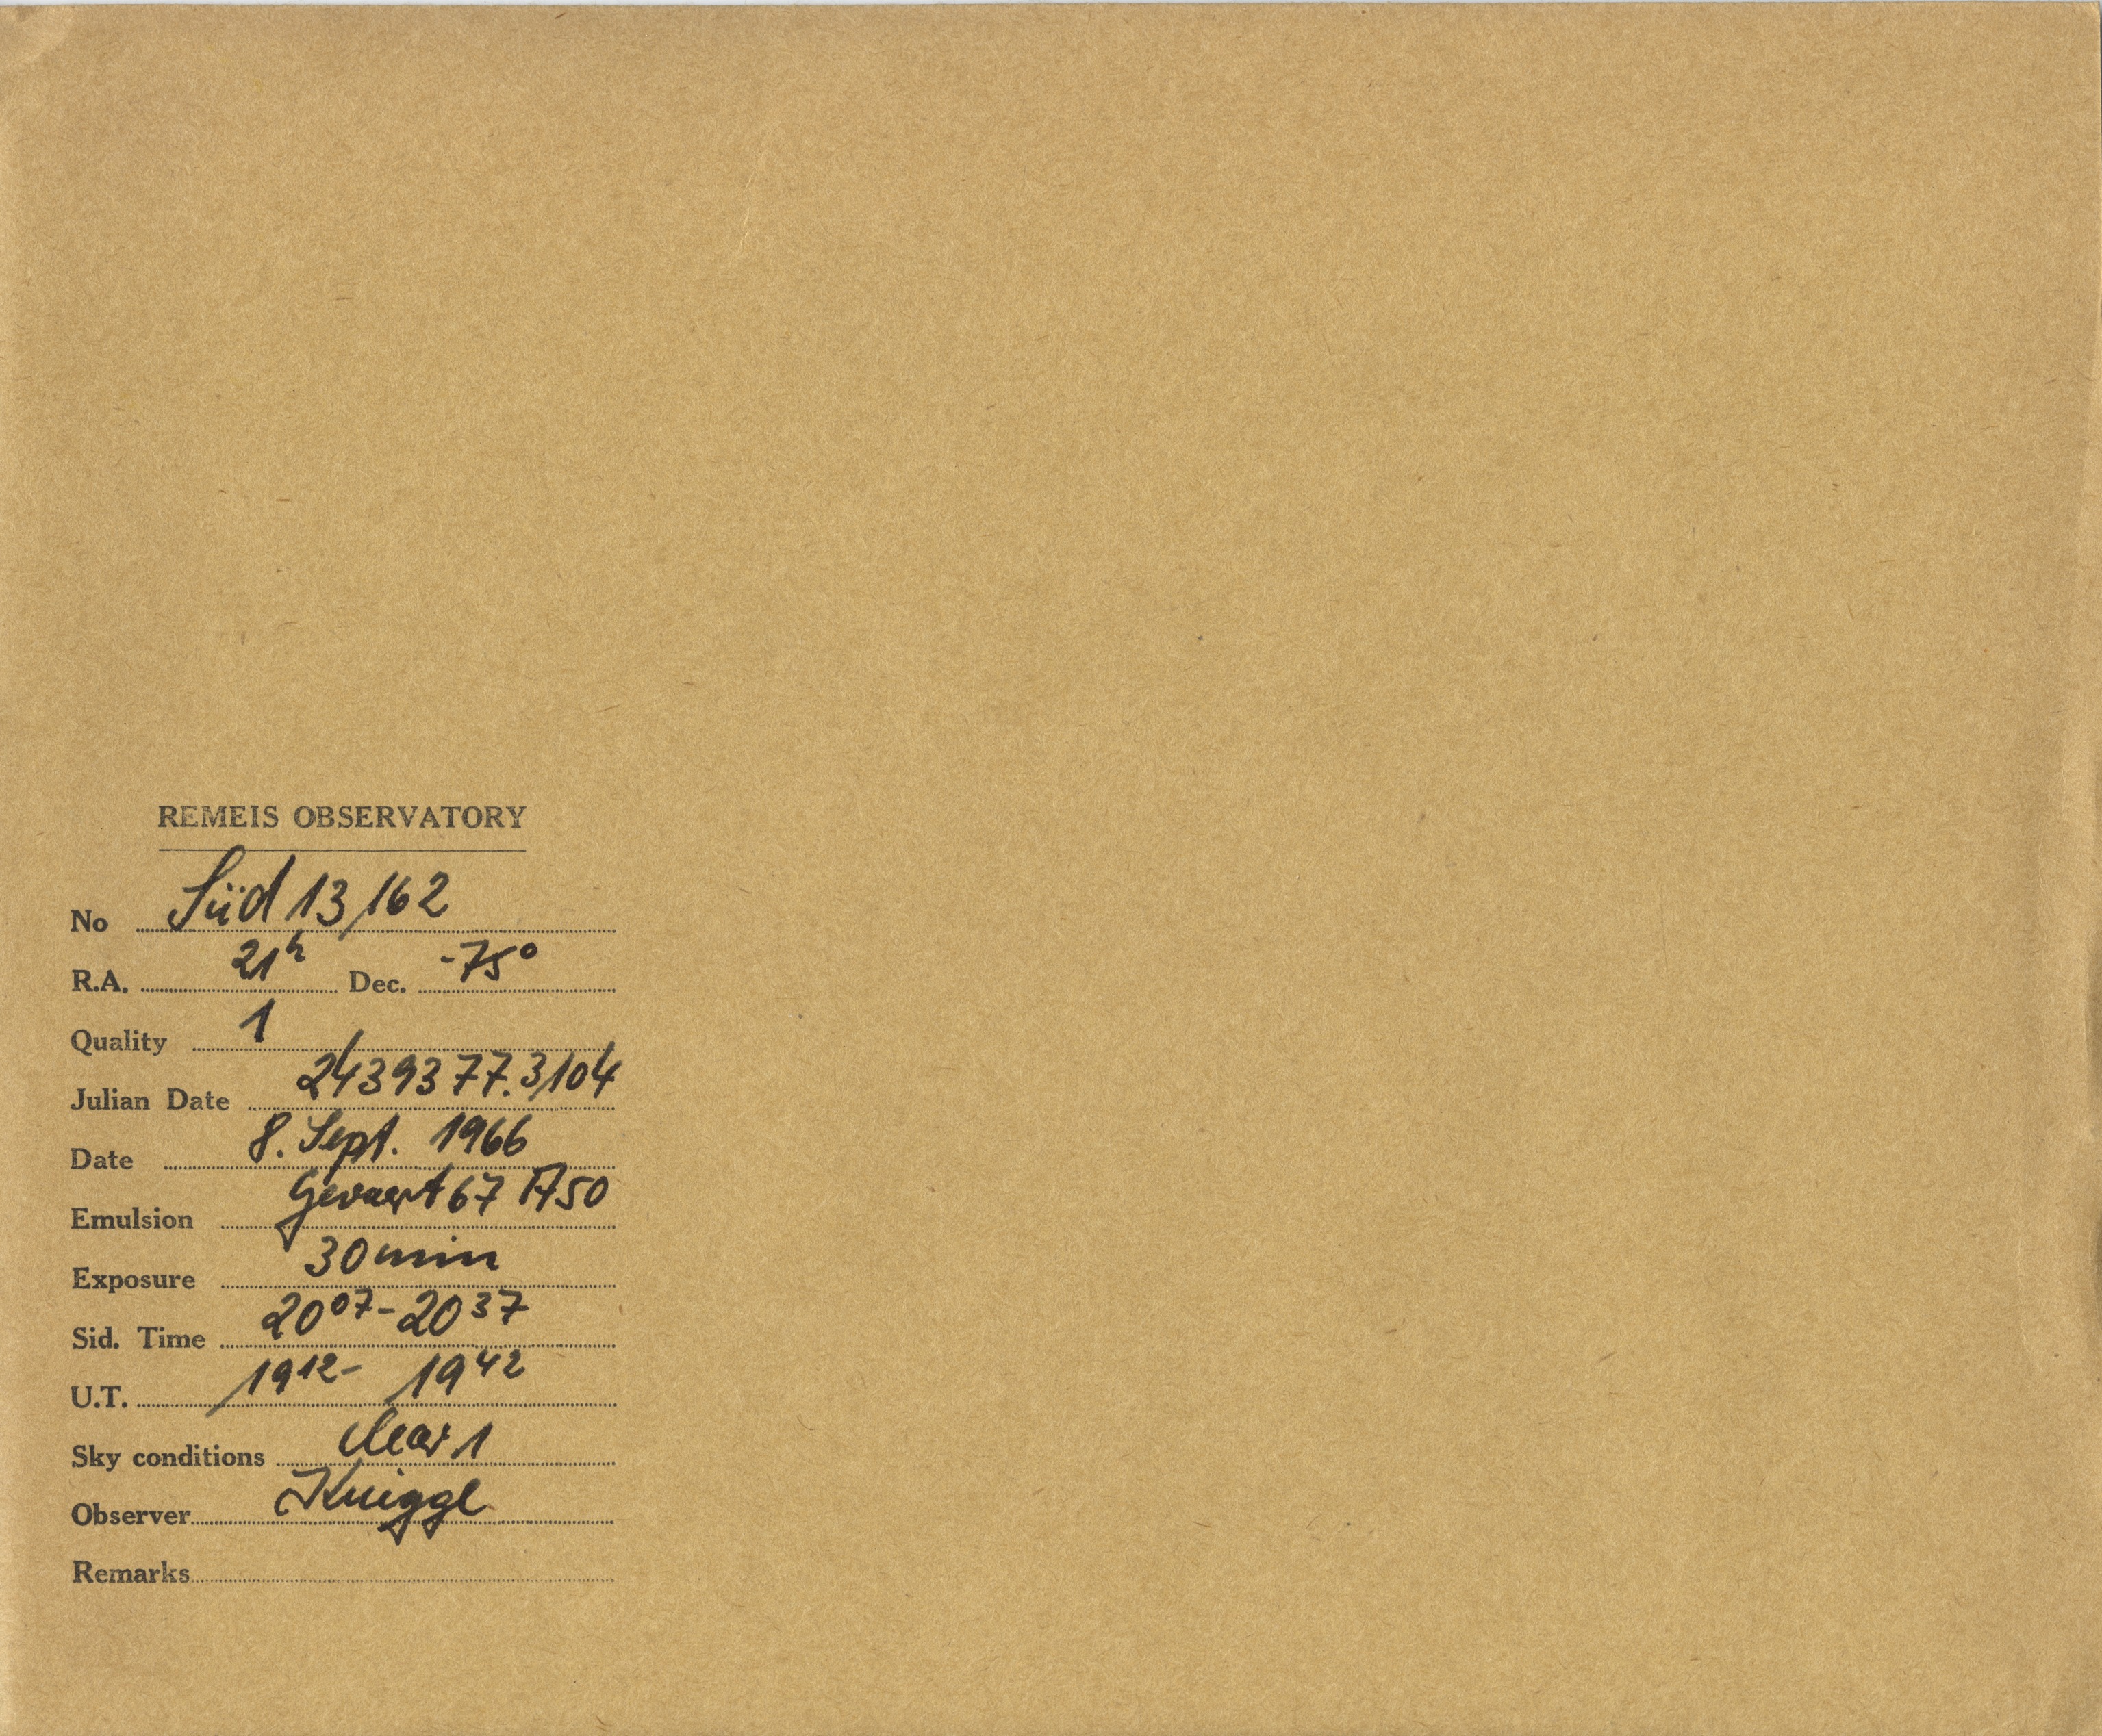 REMEIS OBSERVATORY
No Süd 13/162
R.A. 21h Dec. -75°
Quality 1
Julian Date 2439377.3104
Date 8. Sept. 1966
Emulsion Gevaert 67 A50
Exposure 30 min
Sid. Time 20 07 - 20 37
U.T. 19 12 - 19 42
Sky conditions clear 1
Observer Knigge
Remarks